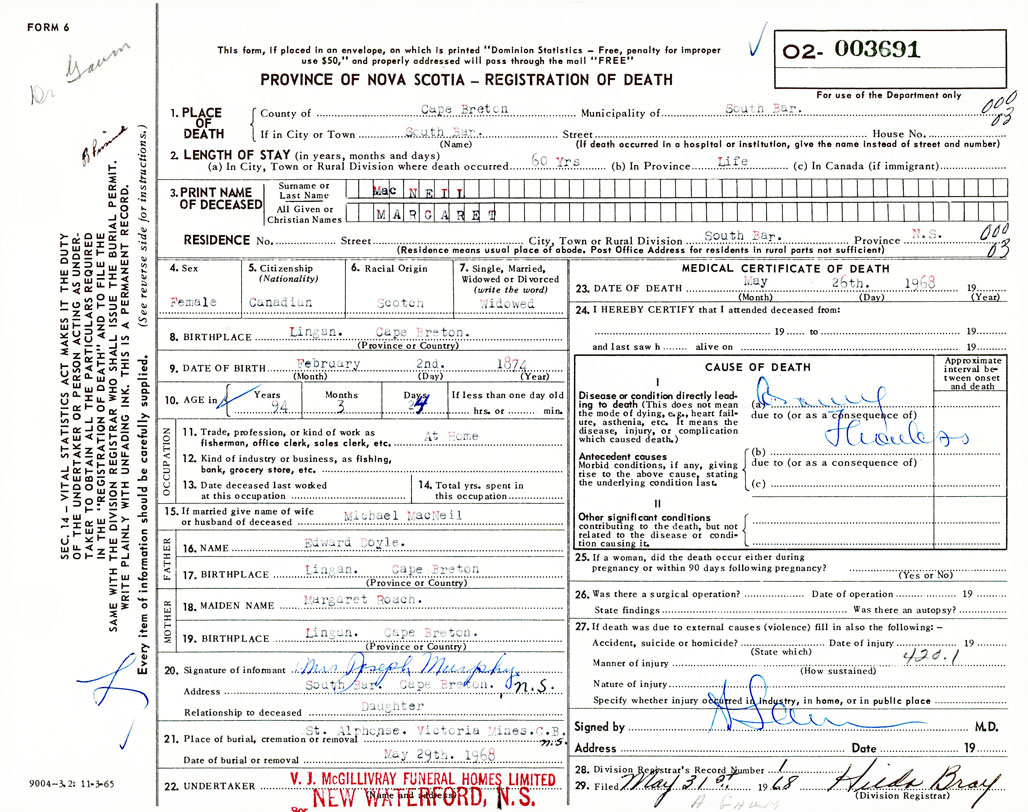 FORM 6
Dr Gaum
This form, if placed in an envelope, on which is printed "Dominion Statistics – Free, penalty for improper
use $50," and properly addressed will pass through the mail "FREE"
PROVINCE OF NOVA SCOTIA – REGISTRATION OF DEATH
O2- 003691
For use of the Department only
000
03
1. PLACE OF DEATH
County of Cape Breton Municipality of South Bar.
If in City or Town South Bar. Street House No.
(Name) (If death occurred in a hospital or institution, give the name instead of street and number)
2. LENGTH OF STAY (in years, months and days)
(a) In City, Town or Rural Division where death occurred 60 Yrs (b) In Province Life (c) In Canada (if immigrant)
3. PRINT NAME OF DECEASED
Surname or Last Name Mac NEIL
All Given or Christian Names MARGARET
RESIDENCE No. Street City, Town or Rural Division South Bar. Province N.S.
(Residence means usual place of abode. Post Office Address for residents in rural parts not sufficient)
000
03
4. Sex
Female
5. Citizenship
(Nationality)
Canadian
6. Racial Origin
Scotch
7. Single, Married,
Widowed or Divorced
(write the word)
Widowed
8. BIRTHPLACE Lingan. Cape Breton.
(Province or Country)
9. DATE OF BIRTH February 2nd. 1874
(Month) (Day) (Year)
10. AGE in Years Months Days If less than one day old
94 3 24 hrs. or min.
OCCUPATION
11. Trade, profession, or kind of work as
fisherman, office clerk, sales clerk, etc. At Home
12. Kind of industry or business, as fishing,
bank, grocery store, etc.
13. Date deceased last worked
at this occupation
14. Total yrs. spent in
this occupation
15. If married give name of wife
or husband of deceased Michael MacNeil
FATHER
16. NAME Edward Doyle.
17. BIRTHPLACE Lingan. Cape Breton
(Province or Country)
MOTHER
18. MAIDEN NAME Margaret Roach.
19. BIRTHPLACE Lingan. Cape Breton.
(Province or Country)
20. Signature of informant Mrs Joseph Murphy
Address South Bar. Cape Breton. N.S.
Relationship to deceased Daughter
21. Place of burial, cremation or removal St. Alphonse. Victoria Mines. C.B.
N.S.
Date of burial or removal May 29th. 1968
22. UNDERTAKER V. J. McGILLIVRAY FUNERAL HOMES LIMITED
(Name and address)
NEW WATERFORD, N.S.
MEDICAL CERTIFICATE OF DEATH
23. DATE OF DEATH May 26th. 1968 19
(Month) (Day) (Year)
24. I HEREBY CERTIFY that I attended deceased from:
19 to 19
and last saw h alive on 19
CAUSE OF DEATH
Approximate
interval be-
tween onset
and death
I
Disease or condition directly lead-
ing to death (This does not mean
the mode of dying, e.g., heart fail-
ure, asthenia, etc. It means the
disease, injury, or complication
which caused death.)
(a)
due to (or as a consequence of)
Antecedent causes
Morbid conditions, if any, giving
rise to the above cause, stating
the underlying condition last.
(b)
due to (or as a consequence of)
(c)
II
Other significant conditions
contributing to the death, but not
related to the disease or condi-
tion causing it.
25. If a woman, did the death occur either during
pregnancy or within 90 days following pregnancy?
(Yes or No)
26. Was there a surgical operation? Date of operation 19
State findings Was there an autopsy?
27. If death was due to external causes (violence) fill in also the following: –
Accident, suicide or homicide? Date of injury 19
(State which)
420.1
Manner of injury
(How sustained)
Nature of injury
Specify whether injury occurred in industry, in home, or in public place
Signed by M.D.
Address Date 19
28. Division Registrar's Record Number 1
29. Filed May 31st 1968 Hilda Bray
(Division Registrar)
A. Gaum
SEC. 14 – VITAL STATISTICS ACT MAKES IT THE DUTY
OF THE UNDERTAKER OR PERSON ACTING AS UNDER-
TAKER TO OBTAIN ALL THE PARTICULARS REQUIRED
IN THE "REGISTRATION OF DEATH" AND TO FILE THE
SAME WITH THE DIVISION REGISTRAR WHO SHALL ISSUE THE BURIAL PERMIT.
WRITE PLAINLY WITH UNFADING INK. THIS IS A PERMANENT RECORD.
Every item of information should be carefully supplied. (See reverse side for instructions.)
9004-3.2: 11-3-65